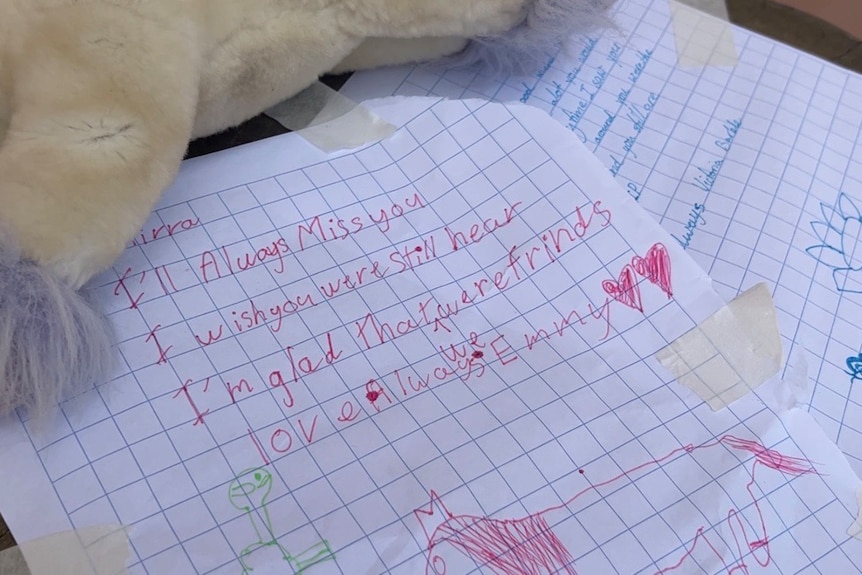 irra
I'll Always Miss you
I wish you were still hear
I'm glad that were frinds
we
love Always Emmy
alot you would
I saw your
around you
you still are
always Victoria